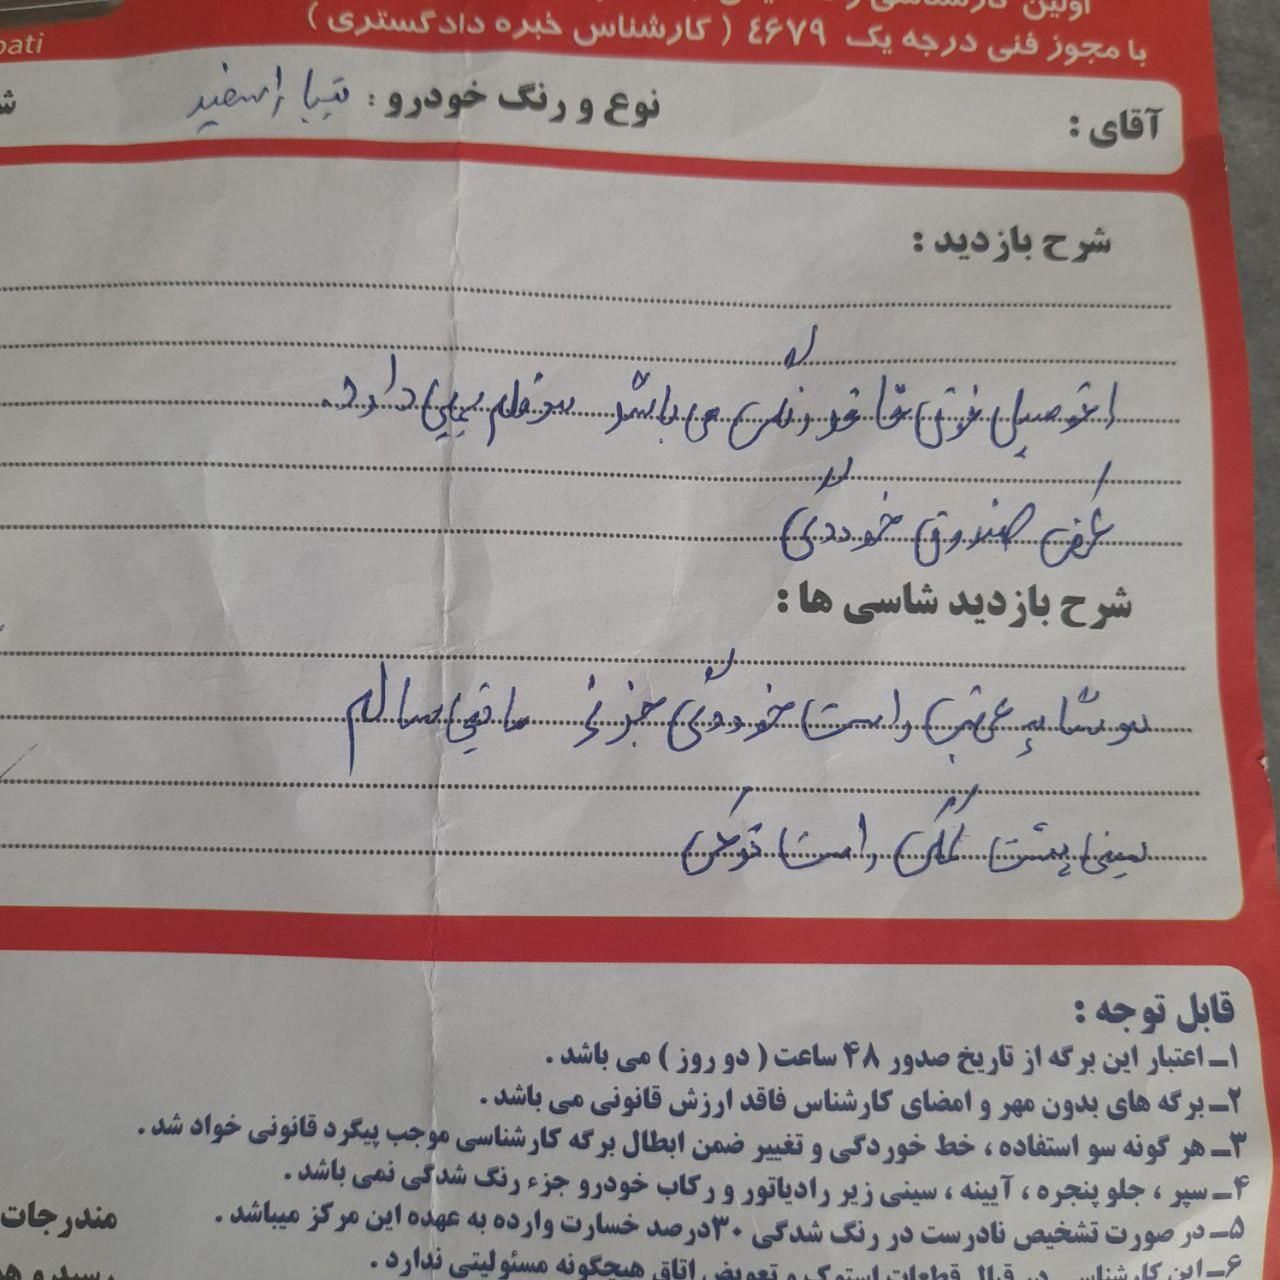 اولین کارشناسی
با مجوز فنی درجه یک ٤۶۷۹ ( کارشناس خبره دادگستری )
pati
آقای :
نوع و رنگ خودرو : تیبا سفید
شرح بازدید :
اتومبیل فوق فاقد رنگ می باشد سوقلم بیبی دارد.
کف صندوق خوردگی
شرح بازدید شاسی ها :
سرشاسی عقب راست خوردگی جزئی مابقی سالم
سینی پشت گلگیر راست
قابل توجه :
۱ـ اعتبار این برگه از تاریخ صدور ۴۸ ساعت ( دو روز ) می باشد .
۲ـ برگه های بدون مهر و امضای کارشناس فاقد ارزش قانونی می باشد .
۳ـ هر گونه سو استفاده ، خط خوردگی و تغییر ضمن ابطال برگه کارشناسی موجب پیگرد قانونی خواد شد .
۴ـ سپر ، جلو پنجره ، آیینه ، سینی زیر رادیاتور و رکاب خودرو جزء رنگ شدگی نمی باشد .
۵ـ در صورت تشخیص نادرست در رنگ شدگی ۳۰درصد خسارت وارده به عهده این مرکز میباشد .
مندرجات
۶ـ این کارشناسی در قبال قطعات استوک و تعویض اتاق هیچگونه مسئولیتی ندارد .